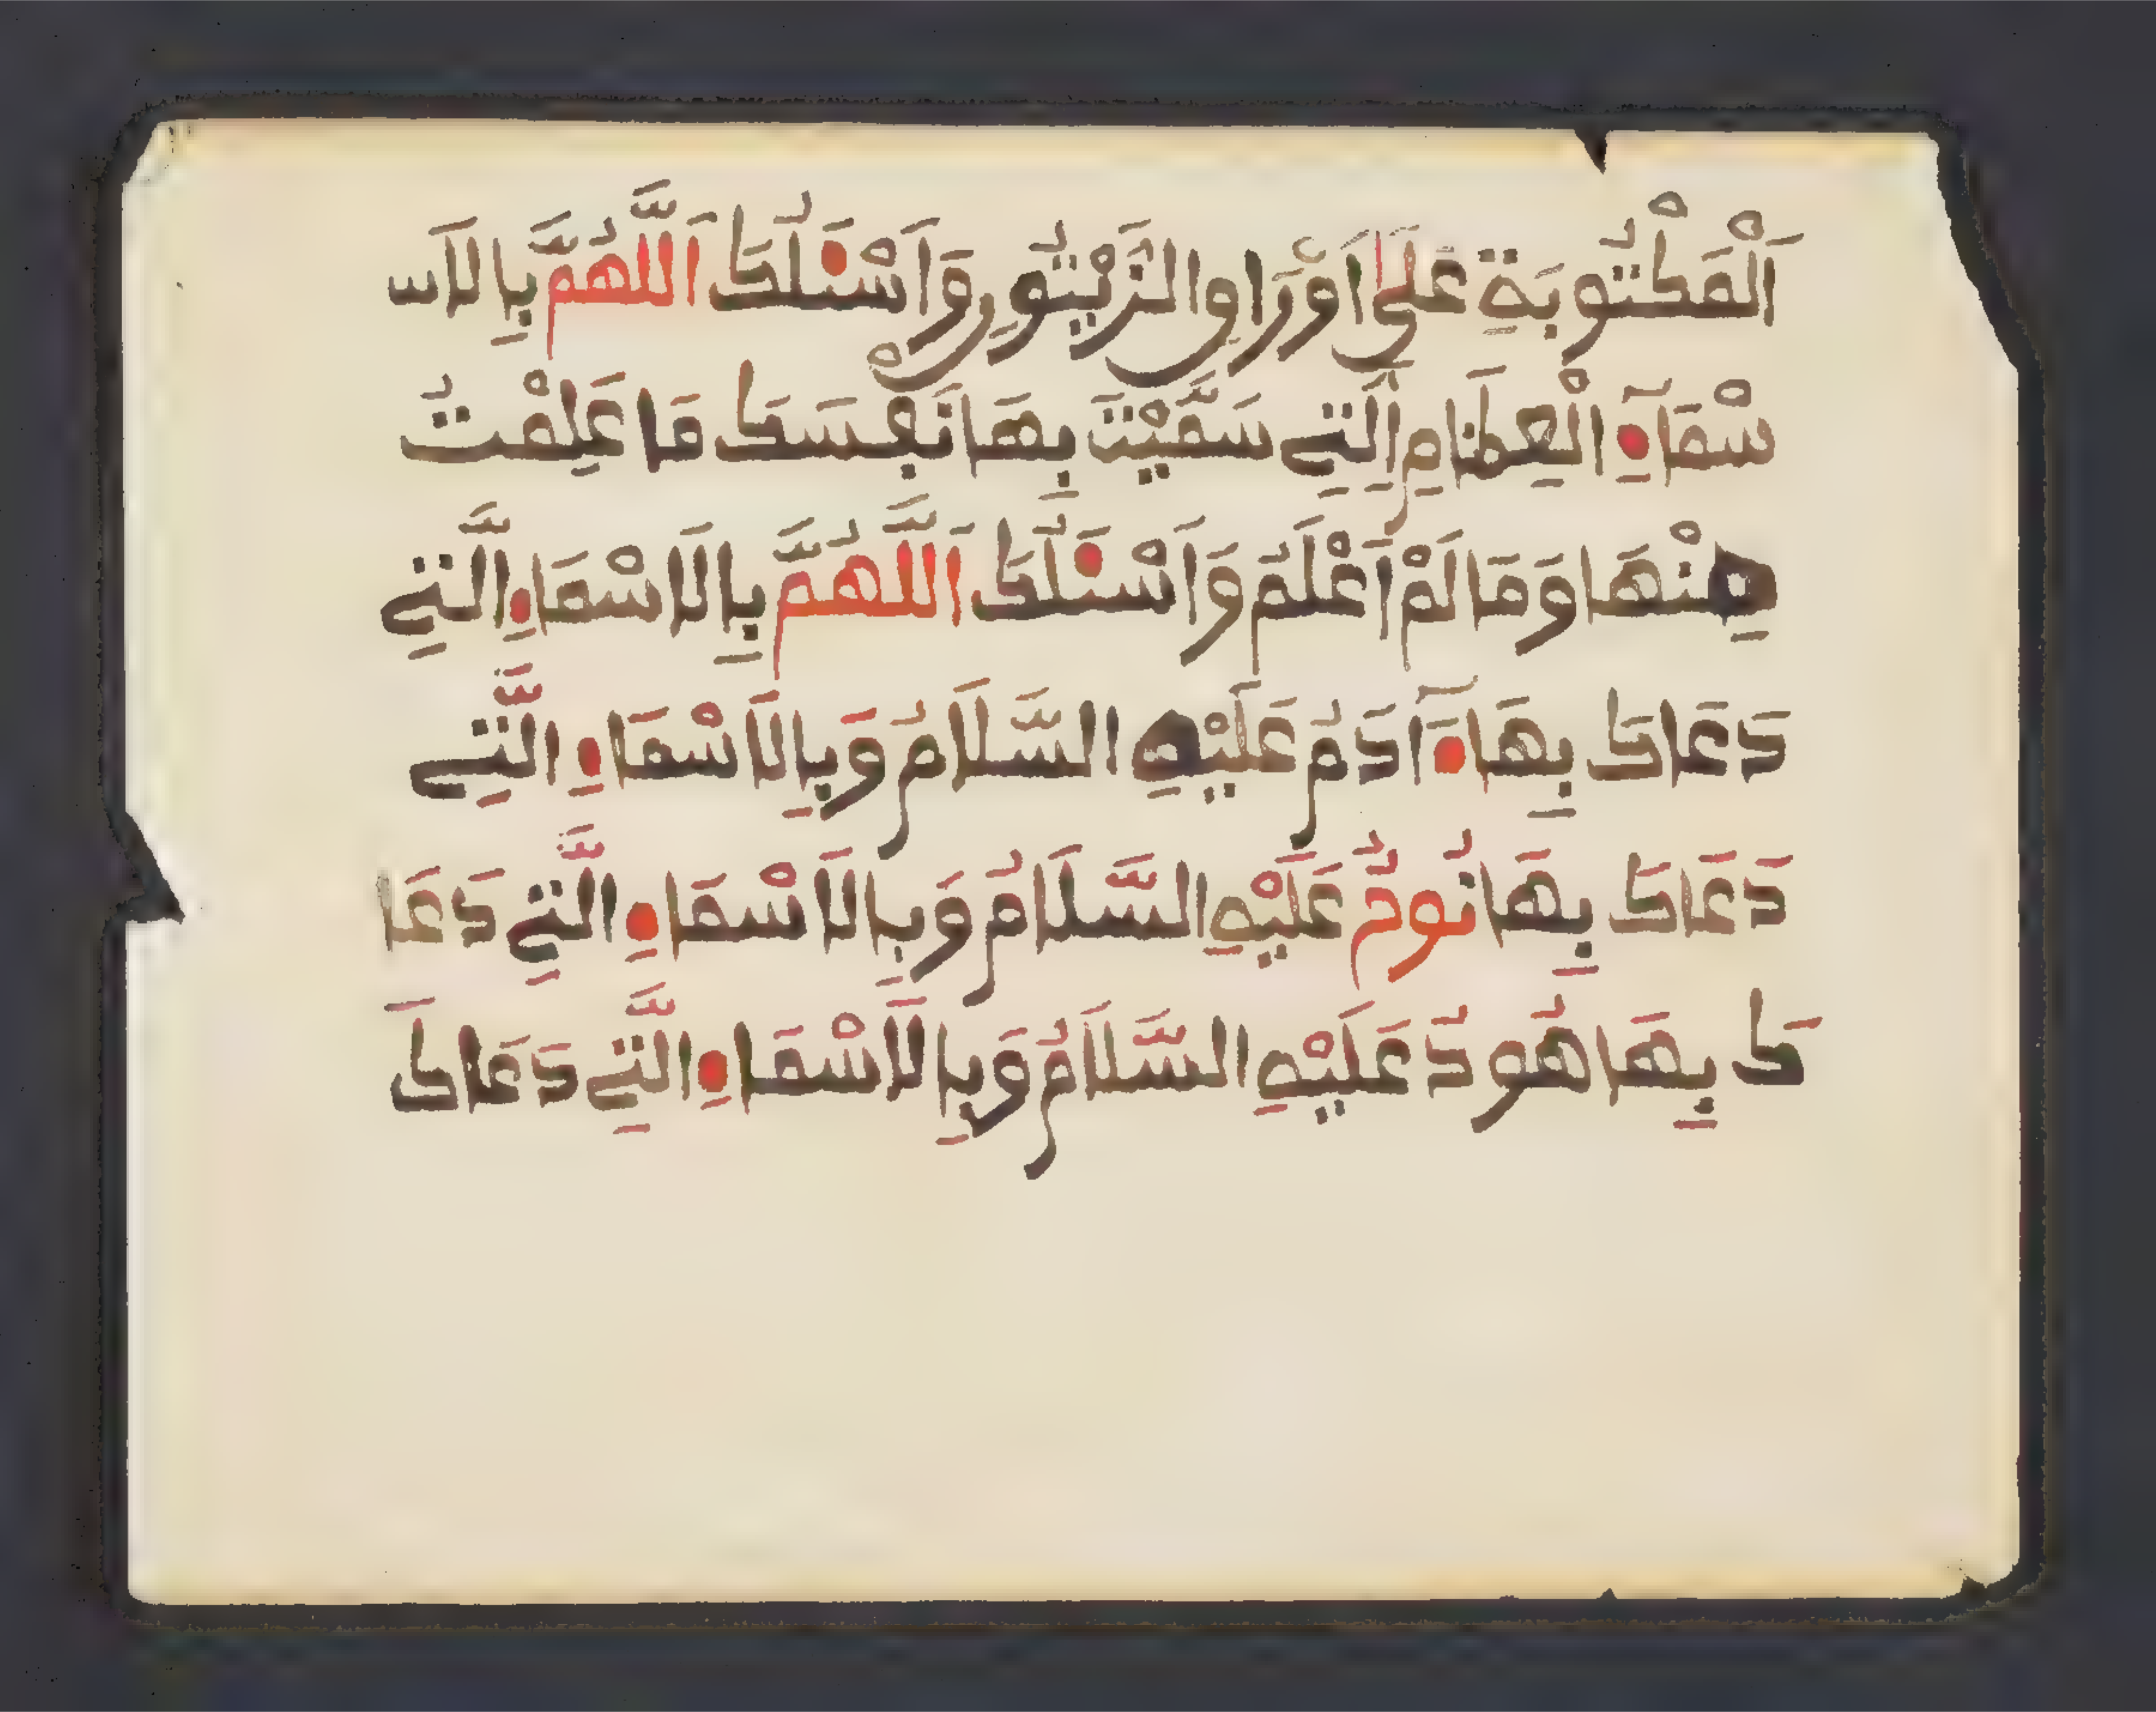 اَلْمَكْتُوبَةِ عَلَىٰ اَوْرَاقِ الزَّيْتُونِ وَاَسْئَلُكَ اَللَّهُمَّ بِالاَس
سْمَآءِ الْعِظَامِ اِلَّتِے سَمَّيْتَ بِهَا نَفْسَكَ مَا عَلِمْتُ
مِنْهَا وَمَا لَمْ اَعْلَمُ وَاَسْئَلُكَ اَللَّهُمَّ بِالَاسْمَاءِ الَّتِے
دَعَاكَ بِهَا ءَادَمُ عَلَيْهِ السَّلَامُ وَبِالَاسْمَاءِ الَّتِے
دَعَاكَ بِهَا نُوحٌ عَلَيْهِ السَّلَامُ وَبِالَاسْمَاءِ الَّتِے دَعَا
كَ بِهَا هُودٌ عَلَيْهِ السَّلَامُ وَبِالَاسْمَاءِ الَّتِے دَعَاكَ